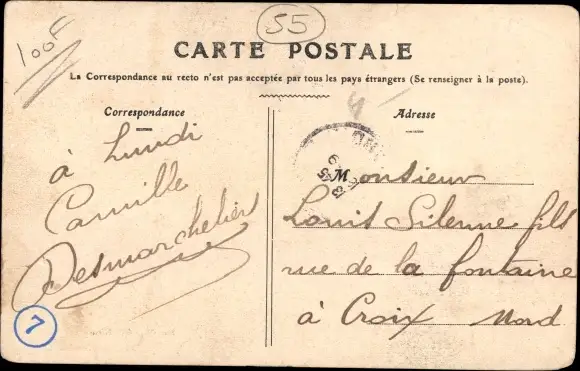 100F
55
CARTE POSTALE
La Correspondance au recto n'est pas acceptée par tous les pays étrangers (Se renseigner à la poste).
Correspondance
à Lundi
Camille
Desmarcheliers
7
Adresse
Monsieur
Louis Silenne fils
rue de la fontaine
à Croix Nord